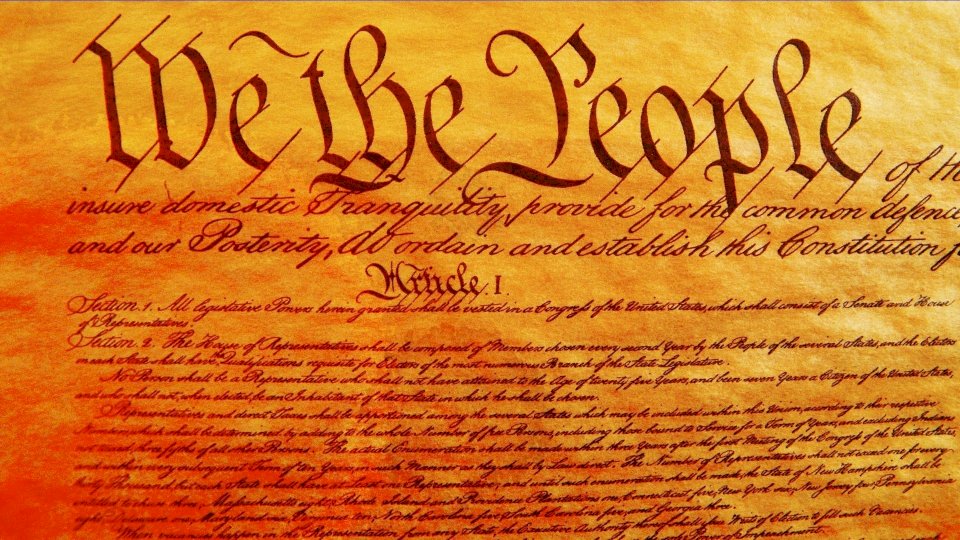 We the People of th
insure domestic Tranquility, provide for the common defence
and our Posterity, do ordain and establish this Constitution f
Article. I.
Section. 1. All legislative Powers herein granted shall be vested in a Congress of the United States, which shall consist of a Senate and House
of Representatives.
Section. 2. The House of Representatives shall be composed of Members chosen every second Year by the People of the several States, and the Electors
in each State shall have the Qualifications requisite for Electors of the most numerous Branch of the State Legislature.
No Person shall be a Representative who shall not have attained to the Age of twenty five Years, and been seven Years a Citizen of the United States,
and who shall not, when elected, be an Inhabitant of that State in which he shall be chosen.
Representatives and direct Taxes shall be apportioned among the several States which may be included within this Union, according to their respective
Numbers, which shall be determined by adding to the whole Number of free Persons, including those bound to Service for a Term of Years, and excluding Indians
not taxed, three fifths of all other Persons. The actual Enumeration shall be made within three Years after the first Meeting of the Congress of the United States,
and within every subsequent Term of ten Years, in such Manner as they shall by Law direct. The Number of Representatives shall not exceed one for every
thirty Thousand, but each State shall have at Least one Representative; and until such enumeration shall be made, the State of New Hampshire shall be
entitled to chuse three, Massachusetts eight, Rhode Island and Providence Plantations one, Connecticut five, New York six, New Jersey four, Pennsylvania
eight, Delaware one, Maryland six, Virginia ten, North Carolina five, South Carolina five, and Georgia three.
When vacancies happen in the Representation from any State, the Executive Authority thereof shall issue Writs of Election to fill such Vacancies.
Power of Impeachment.